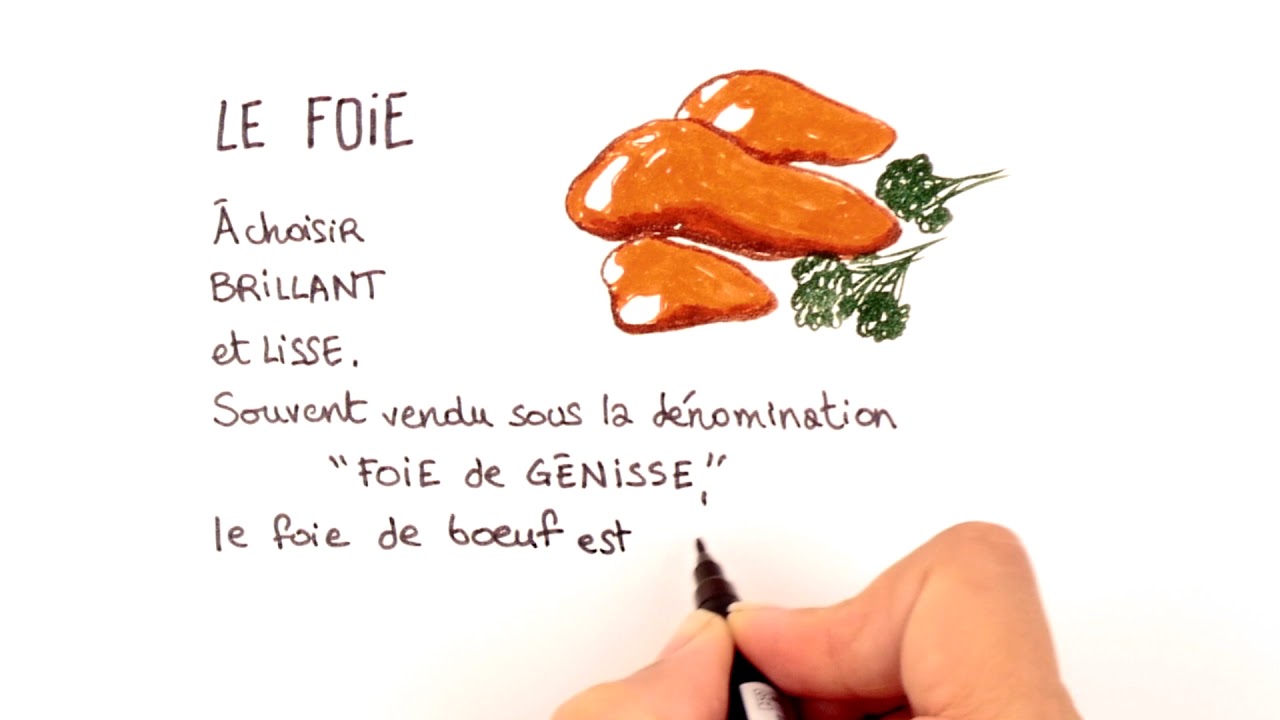 LE FOiE
À choisiR
BRiLLANT
et LiSSE.
Souvent vendu sous la dénomination
"FOiE de GÉNiSSE",
le foie de boeuf est